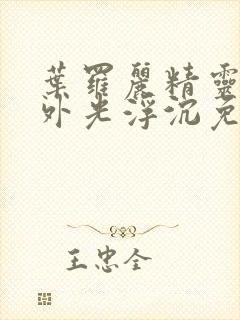 葉羅麗精靈
外光浮沉免
王忠全